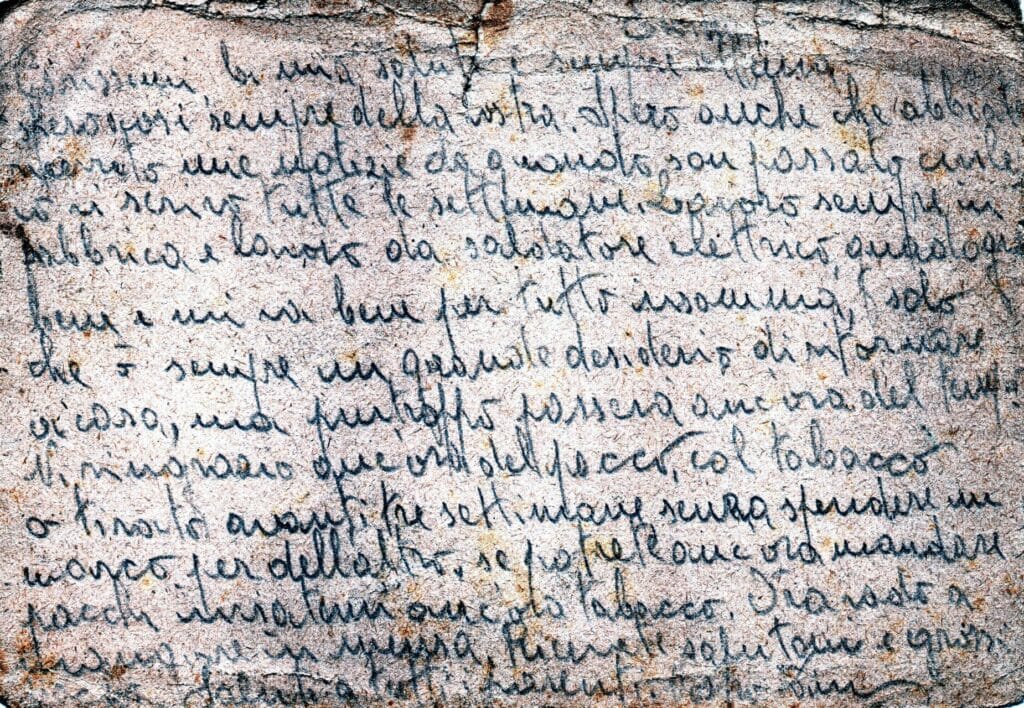 Carissimi la mia salute è sempre ottima
spero così sempre della vostra. Spero anche che abbiate
ricevuto mie notizie da quando son passato civile
io vi scrivo tutte le settimane. Lavoro sempre in
fabbrica e lavoro da saldatore elettrico, guadagno
bene e mi va bene per tutto insomma, è solo
che ò sempre un grande desiderio di ritornare
a casa, ma purtroppo passerà ancora del temp.
Vi ringrazio ancora del pacco, col tabacco
ò tirato avanti tre settimane senza spendere un
marco per dell'altro, se potrete ancora mandare
pacchi inviatemi ancora tabacco. Ora vado a
mangiare in mensa. Ricevete saluti e grossi
saluti a tutti i parenti. vostro